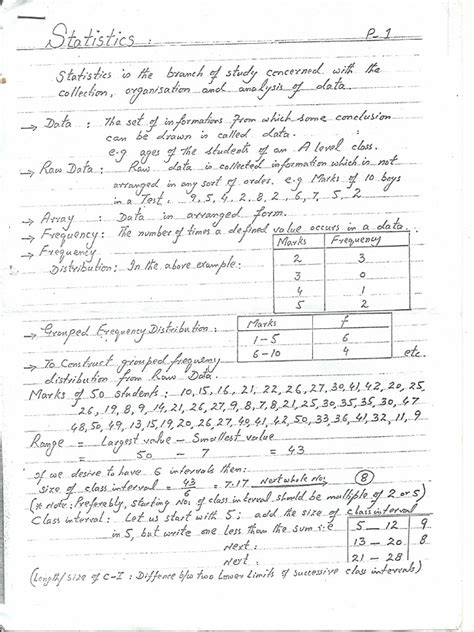 Statistics : P-1
Statistics is the branch of study concerned with the
collection, organisation and analysis of data.
→ Data : The set of informations from which some conclusion
can be drawn is called data.
e.g ages of the students of an A level class.
→ Raw Data : Raw data is collected information which is not
arranged in any sort of order. e.g Marks of 10 boys
in a Test. 9, 5, 4, 2, 8, 2, 6, 7, 5, 2
→ Array : Data in arranged form.
→ Frequency: The number of times a defined value occurs in a data.
→ Frequency
Distribution: In the above example:
Marks Frequency
2 3
3 0
4 1
5 2
→ Grouped Frequency Distribution :
Marks f
1-5 6
6-10 4 etc.
→ To Construct grouped frequency
distribution from Raw Data.
Marks of 50 students : 10, 15, 16, 21, 22, 26, 27, 30, 41, 42, 20, 25
26, 19, 8, 9, 14, 21, 26, 27, 9, 8, 7, 8, 21, 25, 30, 35, 35, 30, 47
48, 50, 49, 13, 15, 19, 20, 26, 27, 40, 41, 42, 50, 33, 36, 41, 32, 11, 9
Range = Largest value - Smallest value
= 50 - 7 = 43
If we desire to have 6 intervals then:
Size of class interval = 43/6 = 7.17 Next whole No; 8
(* Note: Preferably, starting No; of class interval should be multiple of 2 or 5)
Class interval : Let us start with 5; add the size of class interval
in 5, but write one less than the sum i.e 5 - 12 9
Next : 13 - 20 8
Next : 21 - 28
(Length/Size of C-I : Diffence b/w two Lower Limits of successive class intervals)